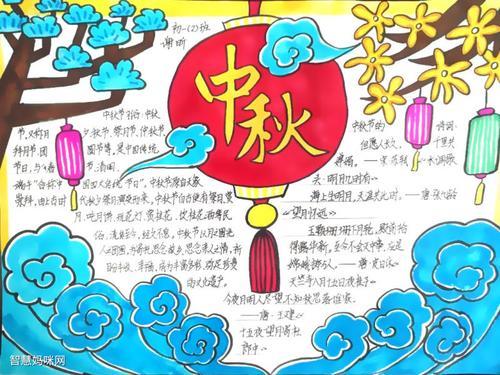 初一(2)班
谢昕
中秋
中秋节习俗:中秋
节,又称月夕、秋节、
拜月节、团圆节等,是中国传统
节日,与春节、清明、
端午"合称中国四大传统节日"。中秋节源自天象
崇拜,由上古时代秋夕祭月演变而来。中秋节自古便有祭月、赏
月、吃月饼、玩花灯、赏桂花、饮桂花酒等民
俗,流传至今,经久不息。中秋节以月之圆兆
人之团圆,为寄托思念故乡,思念亲人之情,祈
盼丰收、幸福,成为丰富多彩、弥足珍贵
的文化遗产。
中秋节的诗词:
但愿人长久,千里共
婵娟。——宋·苏轼《水调歌
头·明月几时有》
海上生明月,天涯共此时。——唐·张九龄
《望月怀远》
玉颗珊珊下月轮,殿前拾
得露华新。至今不会天中事,应是
嫦娥掷与人。——唐·皮日休
天竺寺八月十五日夜桂子
今夜月明人尽望,不知秋思落谁家。
——唐·王建《
十五夜望月寄杜
郎中》
智慧妈咪网